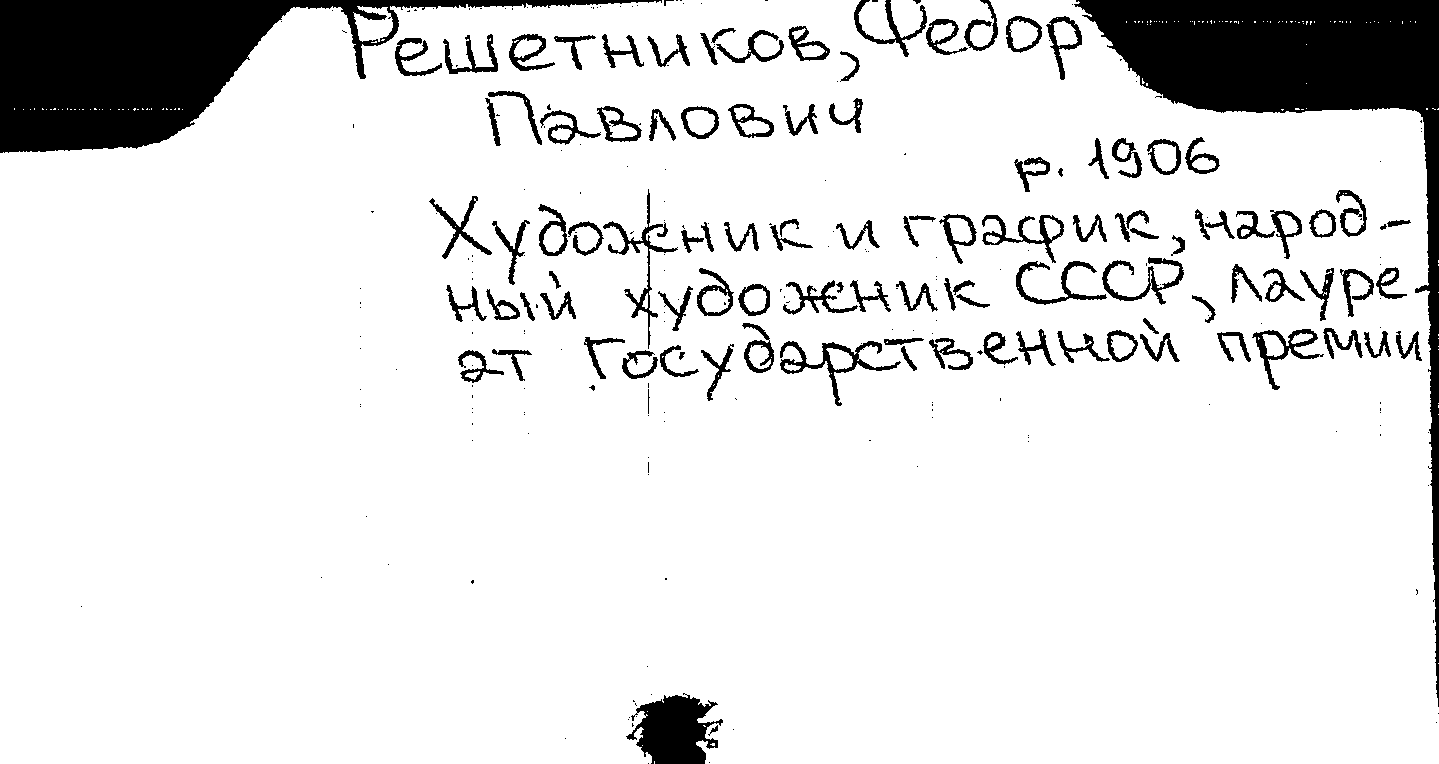 Решетников, Федор
Павлович
р. 1906
Художник и график, народ-
ный художник СССР, лауре-
ат Государственной премии